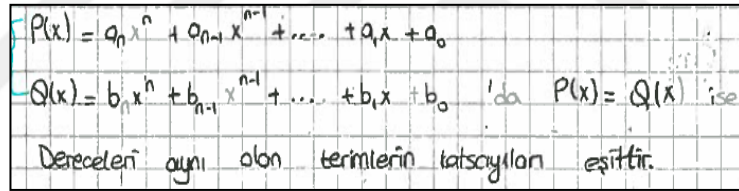 P(x) = aₙxⁿ + aₙ₋₁xⁿ⁻¹ + .... + a₁x + a₀
Q(x) = bₙxⁿ + bₙ₋₁xⁿ⁻¹ + ... + b₁x + b₀ 'da P(x) = Q(x) ise
Dereceleri aynı olan terimlerin katsayıları eşittir.